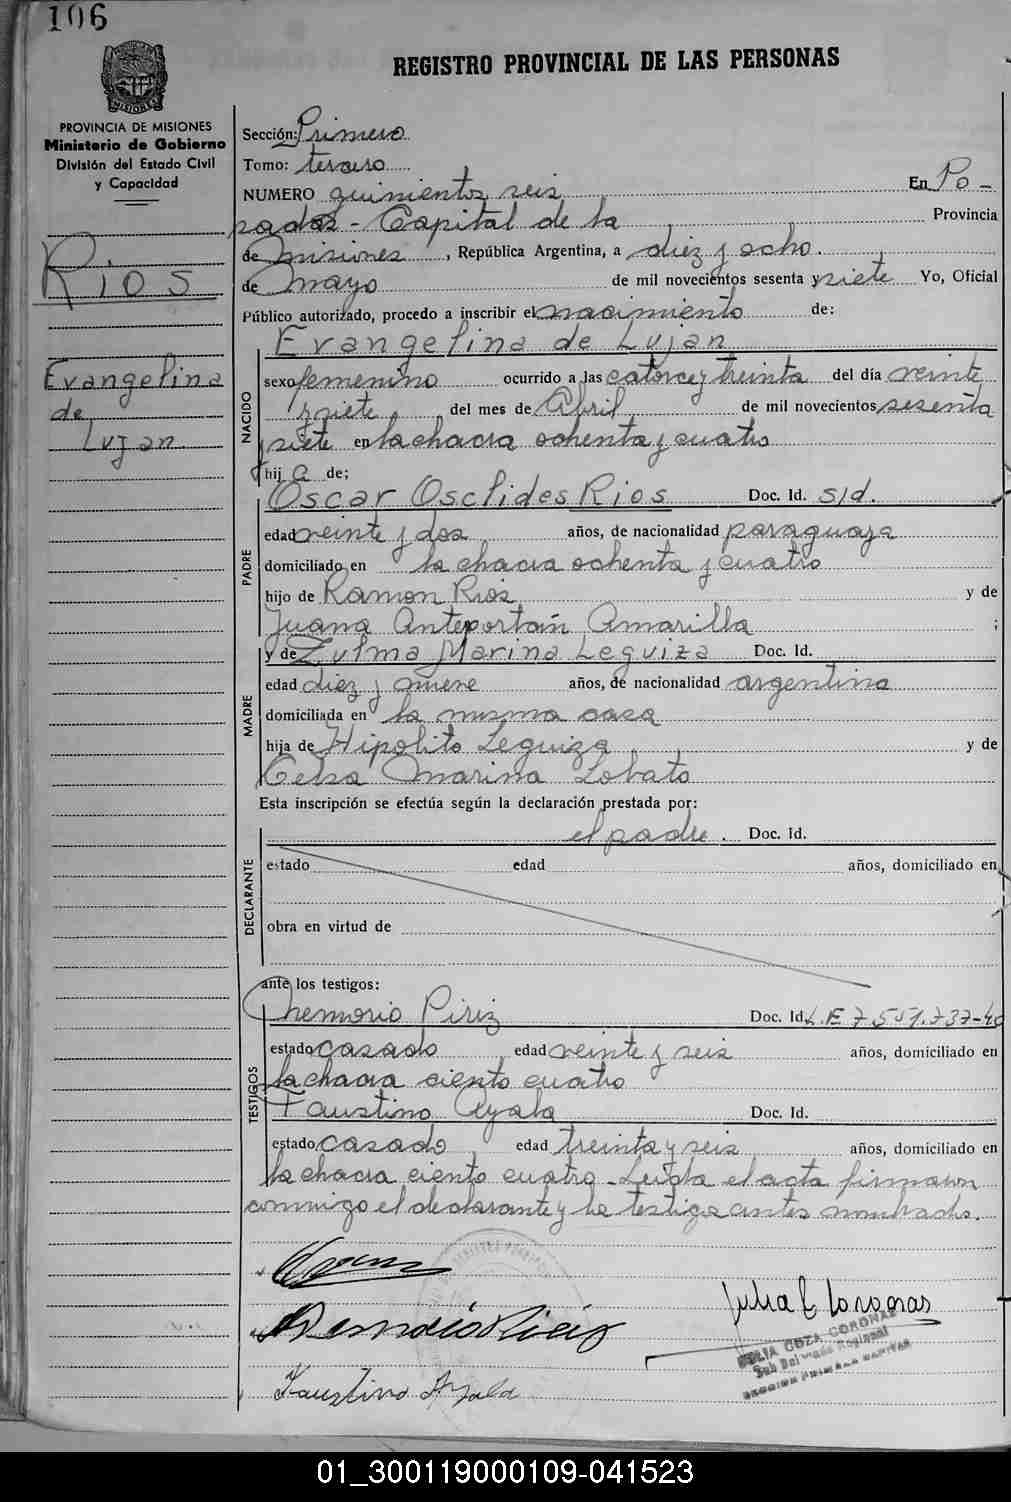 106
REGISTRO PROVINCIAL DE LAS PERSONAS
PROVINCIA DE MISIONES
Ministerio de Gobierno
División del Estado Civil
y Capacidad
Rios
Evangelina
de
Lujan
Sección: Primero
Tomo: tercero
NUMERO quinientos seis En Po-
sadas - Capital de la Provincia
de Misiones, República Argentina, a diez y ocho.
de Mayo de mil novecientos sesenta y siete Yo, Oficial
Público autorizado, procedo a inscribir el nacimiento de:
Evangelina de Lujan
NACIDO
sexo femenino ocurrido a las catorce y treinta del día veinte
y siete del mes de Abril de mil novecientos sesenta
y siete en la chacra ochenta y cuatro
hija de;
Oscar Osclides Rios Doc. Id. s/d.
PADRE
edad veinte y dos años, de nacionalidad paraguaya
domiciliado en la chacra ochenta y cuatro
hijo de Ramon Rios y de
Juana Amarilla ;
y de Zulma Marina Leguiza Doc. Id.
MADRE
edad diez y nueve años, de nacionalidad argentina
domiciliada en la misma casa
hija de Hipolito Leguiza y de
Celsa Marina Lobato
Esta inscripción se efectúa según la declaración prestada por:
el padre. Doc. Id.
DECLARANTE
estado edad años, domiciliado en
obra en virtud de
ante los testigos:
Piriz Doc. Id. L.E 7.551.737-
TESTIGOS
estado casado edad veinte y seis años, domiciliado en
la chacra ciento cuatro
Faustino Ayala Doc. Id.
estado casado edad treinta y seis años, domiciliado en
la chacra ciento cuatro - Leida el acta firmaron
conmigo el declarante y los testigos antes nombrados.
Julia C Coronas
JULIA COZA CORONAS
Sub Delegada Regional
SECCION PRIMERA CAPITAL
Faustino Ayala
01_300119000109-041523